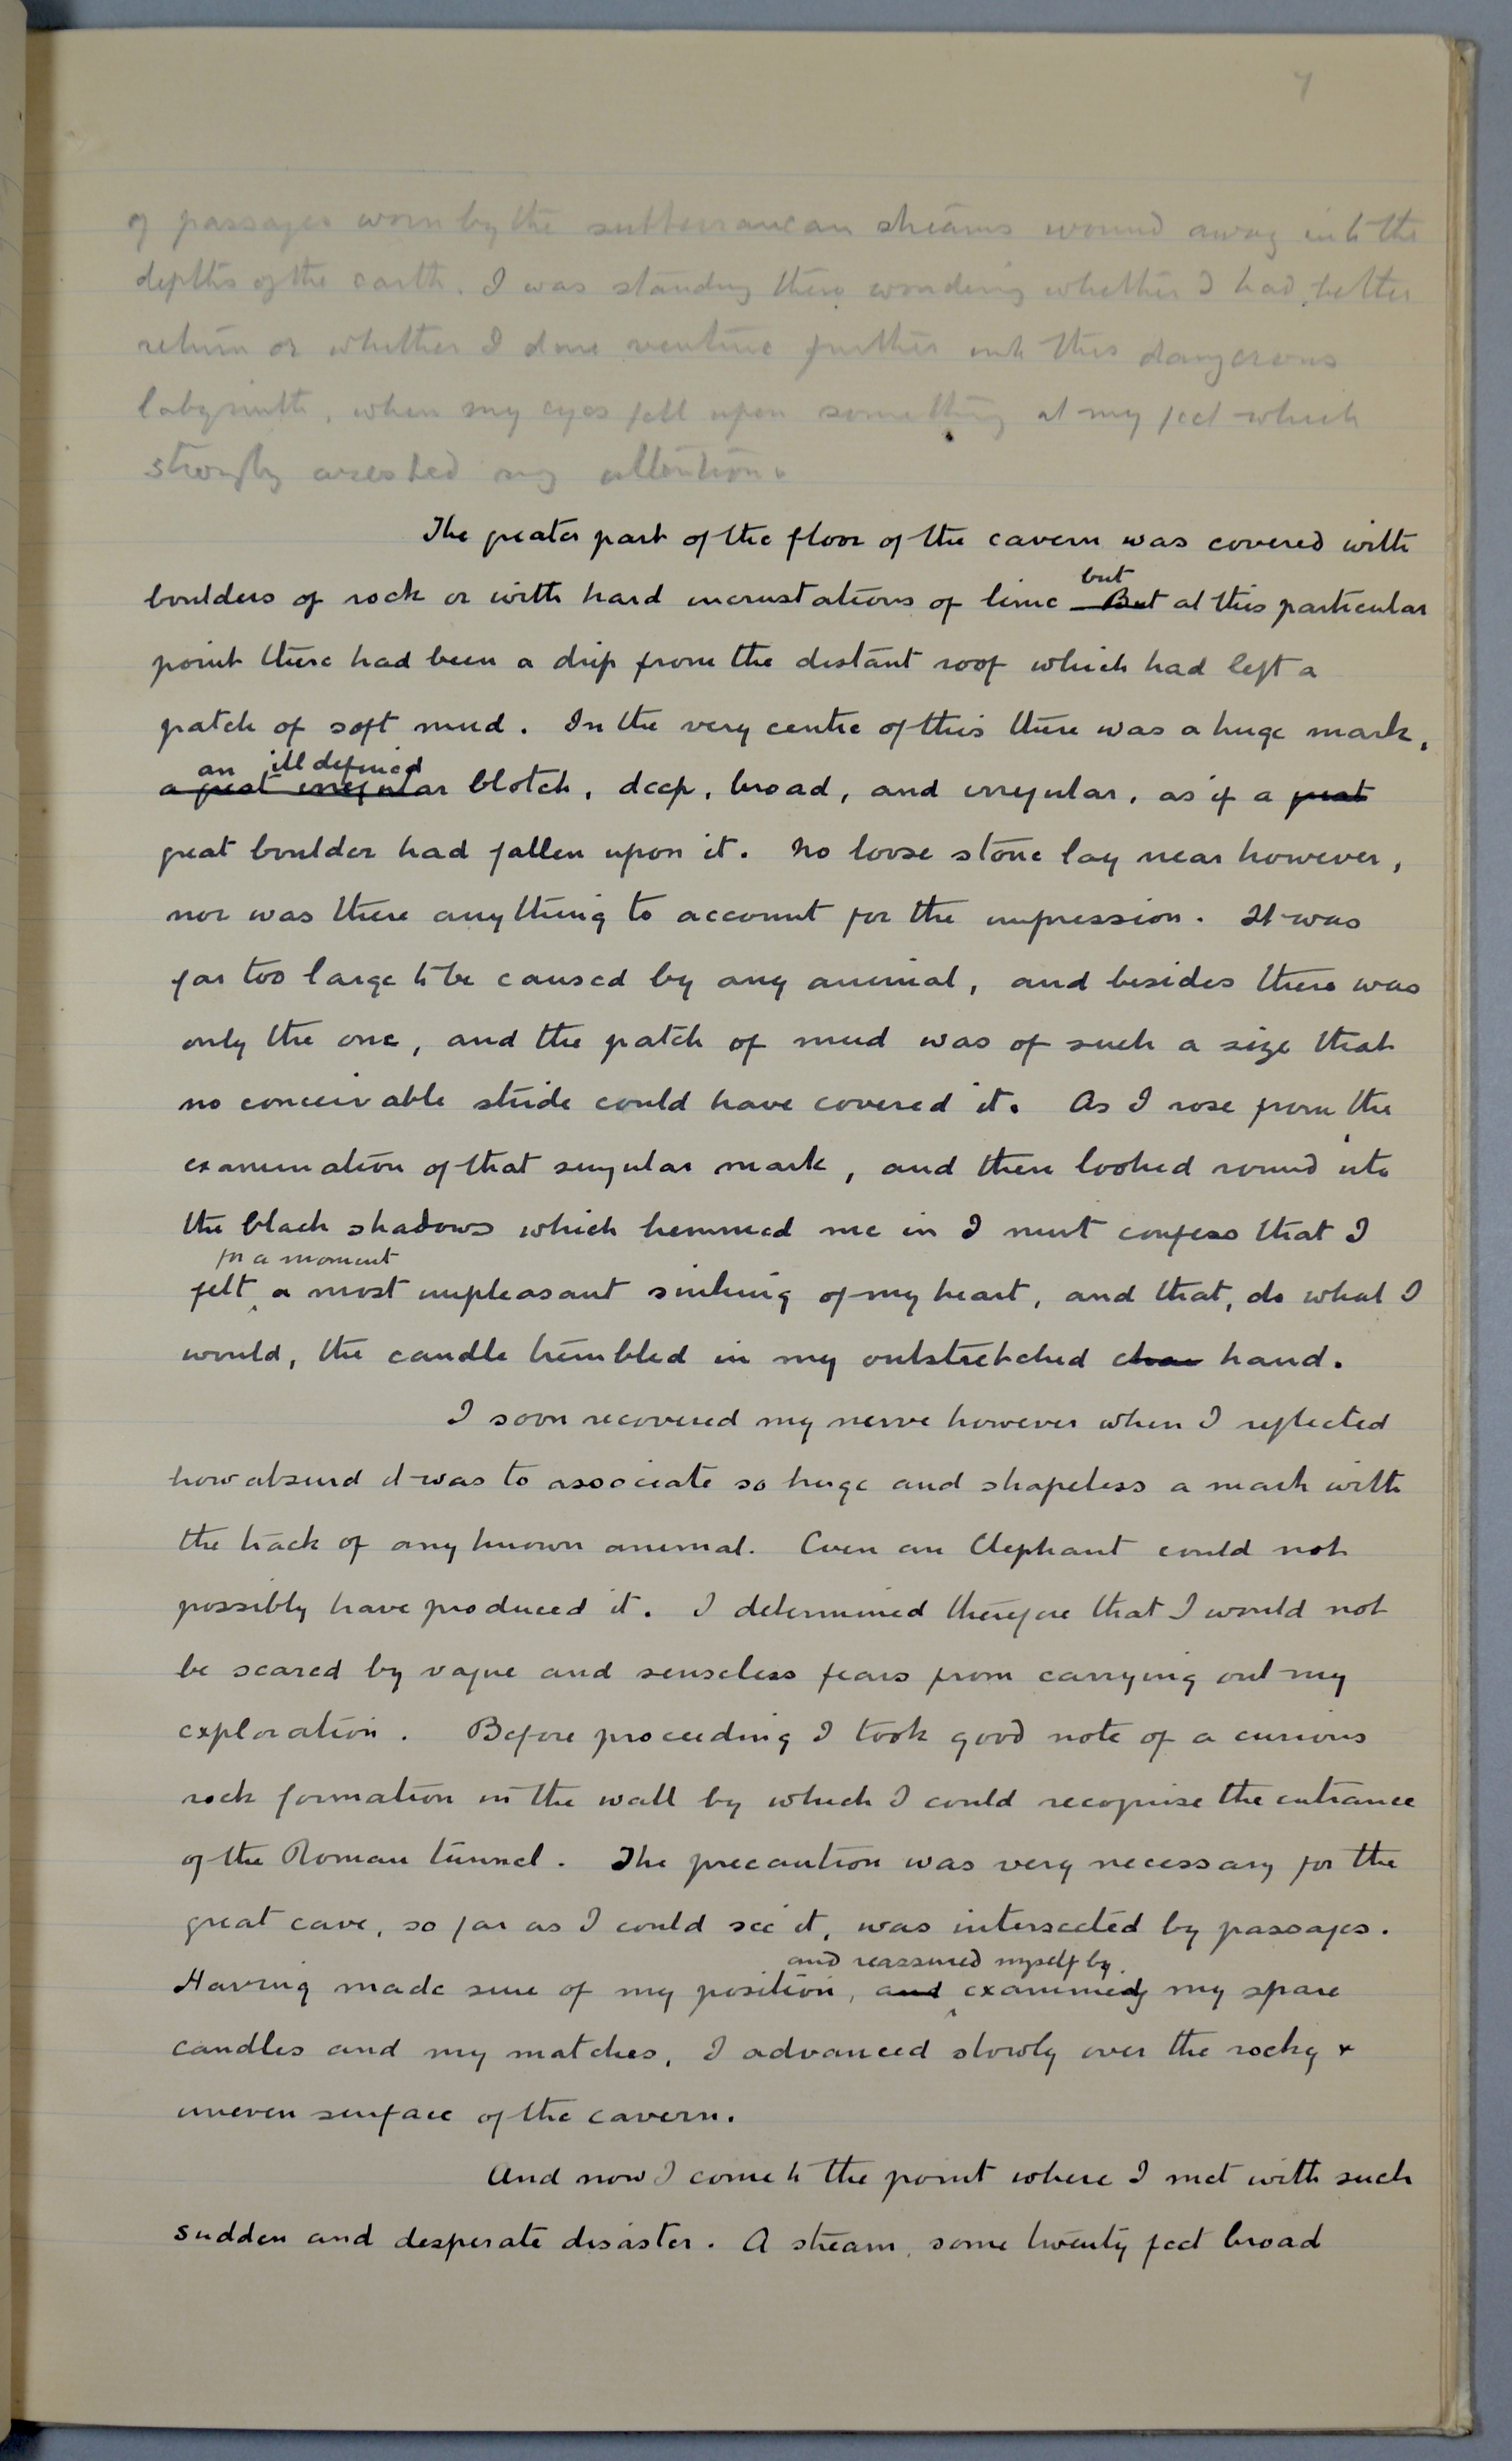 7
of passages worn by the subterranean streams wound away into the
depths of the earth. I was standing there wondering whether I had better
return or whether I dare venture further into this dangerous
labyrinth, when my eyes fell upon something at my feet which
strongly arrested my attention.
The greater part of the floor of the cavern was covered with
but
boulders of rock or with hard incrustations of lime But at this particular
point there had been a drip from the distant roof which had left a
patch of soft mud. In the very centre of this there was a huge mark,
an ill defined
a great irregular blotch, deep, broad, and irregular, as if a great
great boulder had fallen upon it. No loose stone lay near however,
nor was there anything to account for the impression. It was
far too large to be caused by any animal, and besides there was
only the one, and the patch of mud was of such a size that
no conceivable stride could have covered it. As I rose from the
examination of that singular mark, and then looked round into
the black shadows which hemmed me in I must confess that I
for a moment
felt a most unpleasant sinking of my heart, and that, do what I
would, the candle trembled in my outstretched hand.
I soon recovered my nerve however when I reflected
how absurd it was to associate so huge and shapeless a mark with
the track of any known animal. Even an Elephant could not
possibly have produced it. I determined therefore that I would not
be scared by vague and senseless fears from carrying out my
exploration. Before proceeding I took good note of a curious
rock formation in the wall by which I could recognise the entrance
of the Roman tunnel. The precaution was very necessary for the
great cave, so far as I could see it, was intersected by passages.
and reassured myself by
Having made sure of my position, and examining my spare
candles and my matches, I advanced slowly over the rocky &
uneven surface of the cavern.
And now I come to the point where I met with such
sudden and desperate disaster. A stream, some twenty feet broad